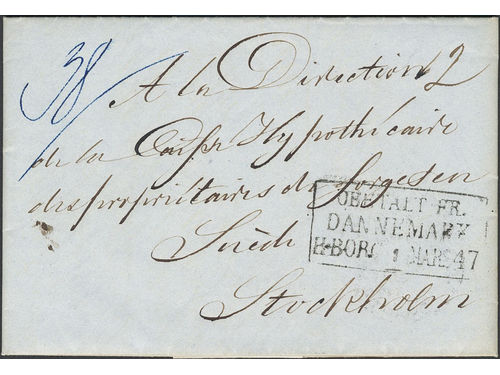 38
A la Direction 2
de la Caisse Hypothécaire
des propriétaires de forges en
Suède
Stockholm
OBETALT FR.
DANNEMARK
H·BORG 1 MARS 47